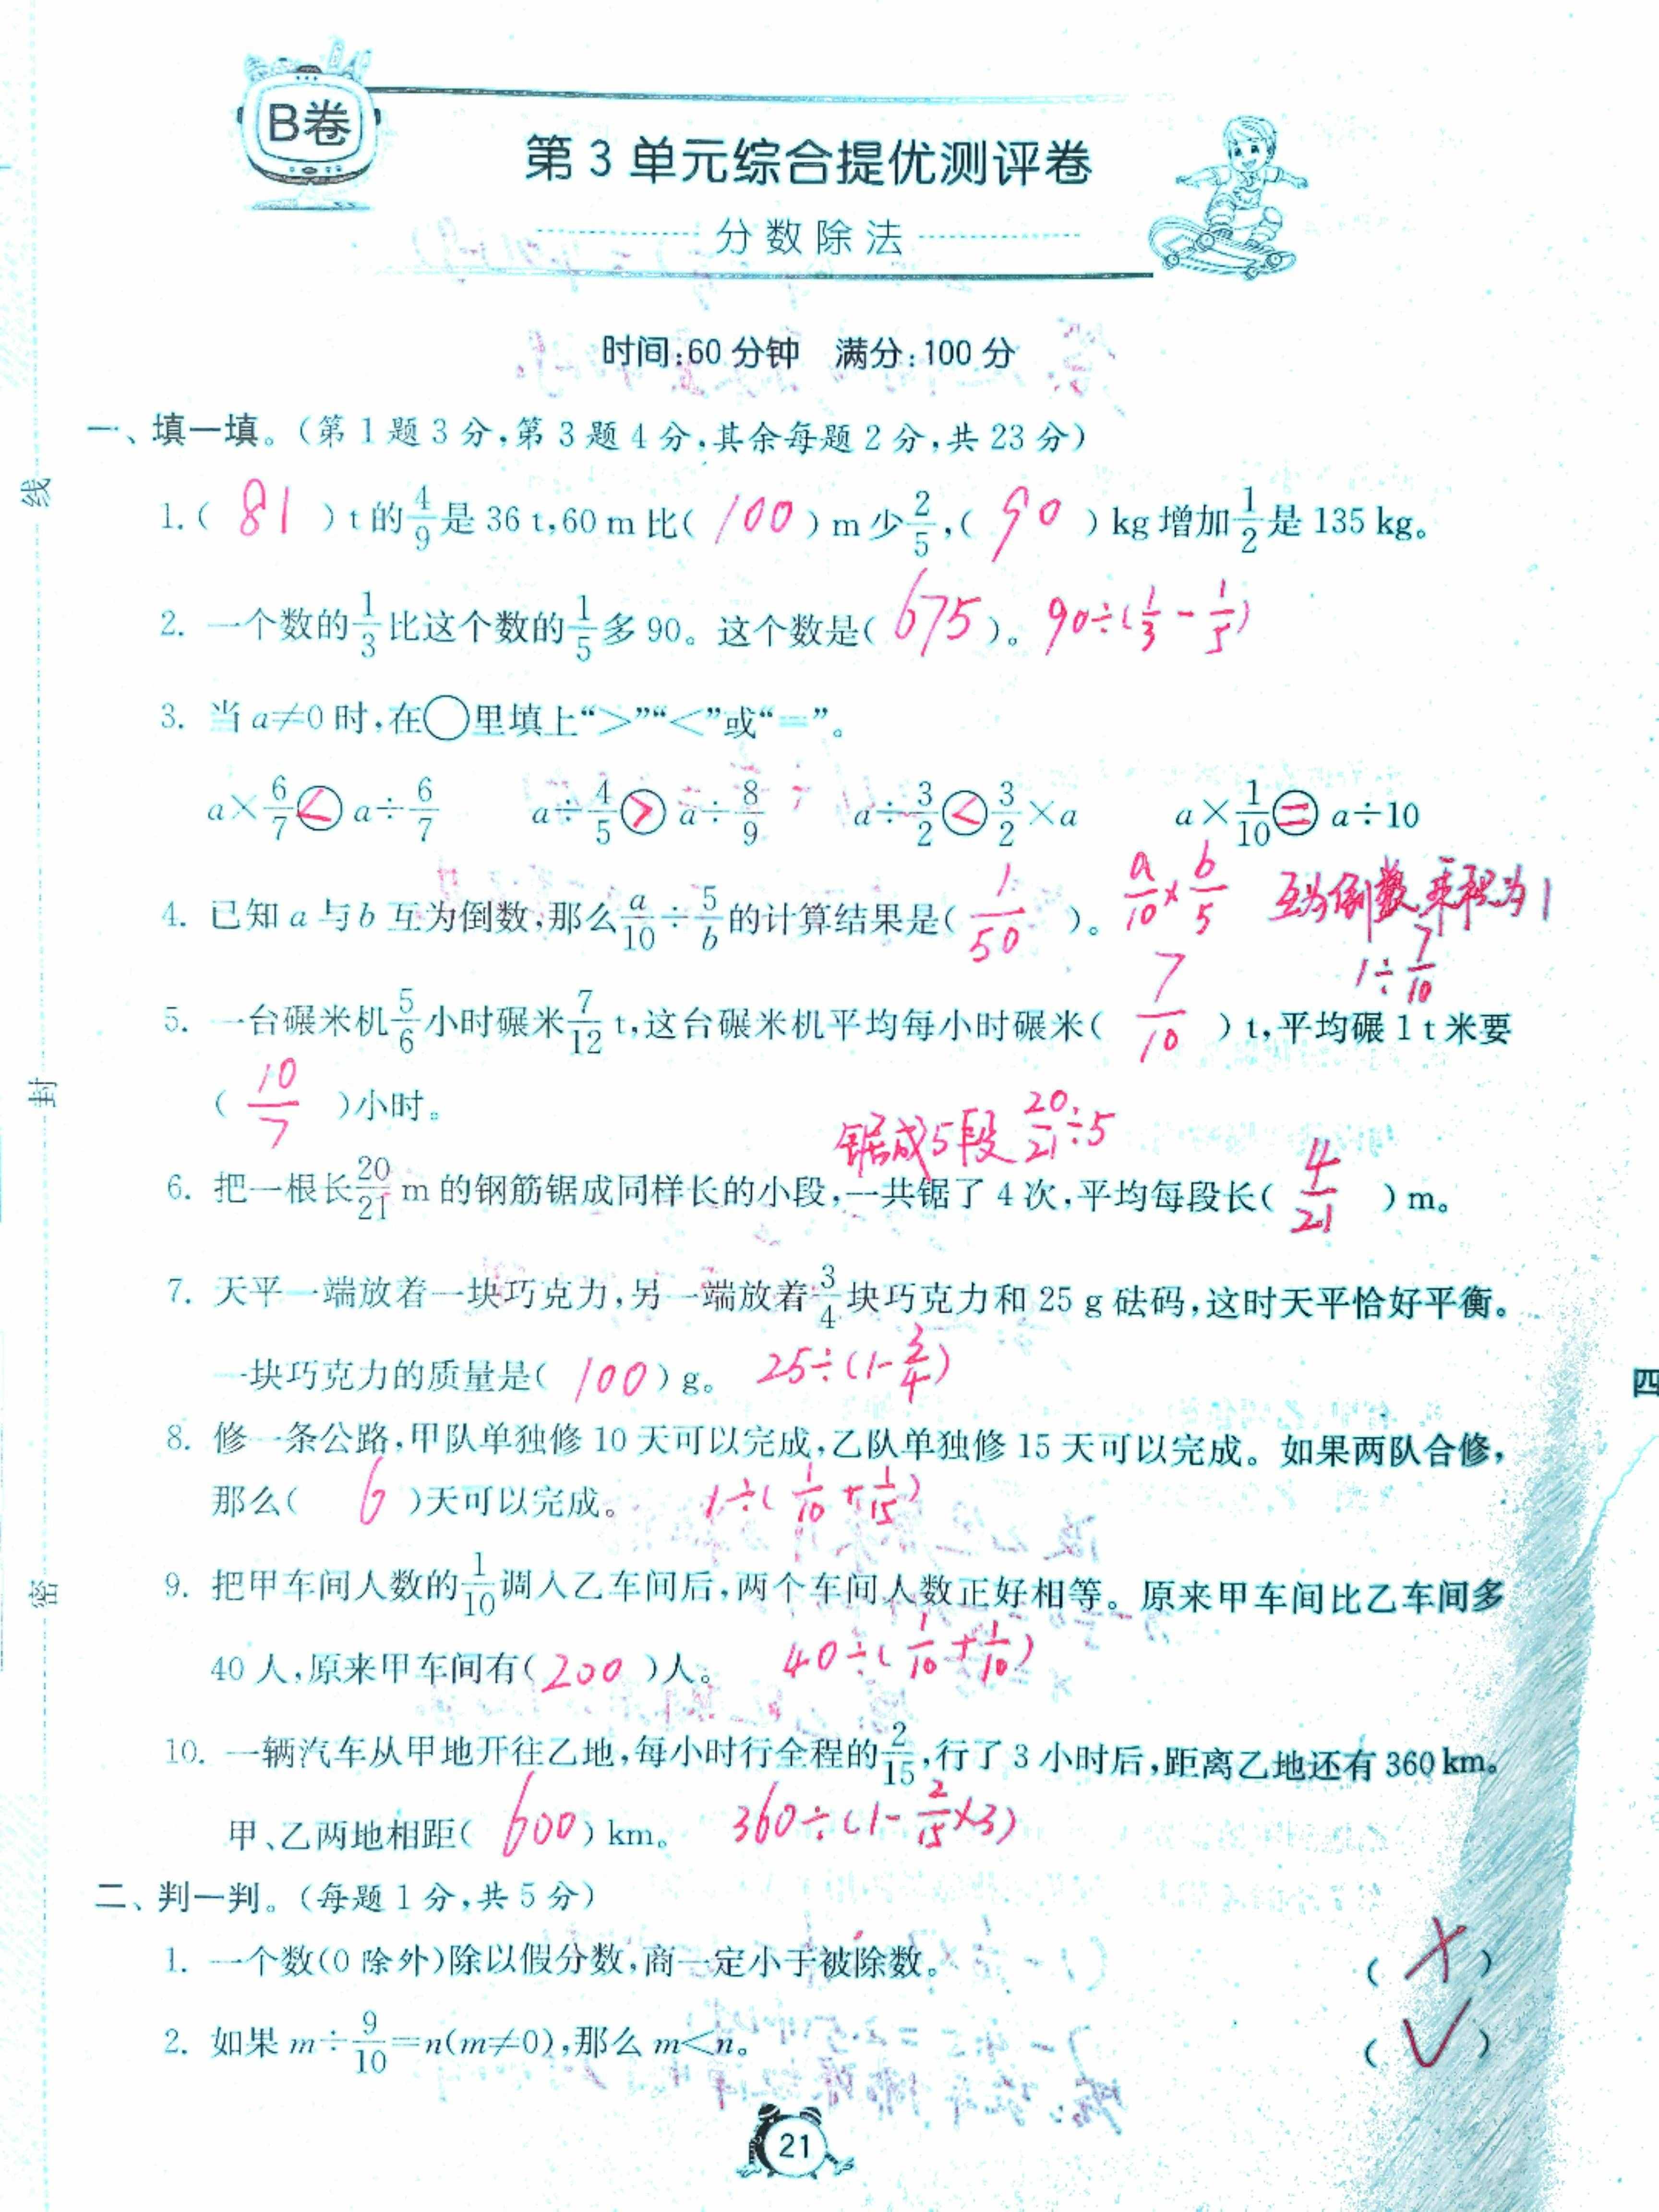 B卷
第3单元综合提优测评卷
分数除法
时间:60分钟 满分:100分
一、填一填。(第1题3分,第3题4分,其余每题2分,共23分)
1.( 81 )t的4/9是36 t,60 m比( 100 )m少2/5,( 90 )kg增加1/2是135 kg。
2. 一个数的1/3比这个数的1/5多90。这个数是( 675 )。 90÷(1/3-1/5)
3. 当a≠0时,在○里填上“>”“<”或“=”。
a×6/7 < a÷6/7 a÷4/5 > a÷8/9 a÷3/2 < 3/2×a a×1/10 = a÷10
4. 已知a与b互为倒数,那么a/10÷5/b的计算结果是( 1/50 )。 a/10×b/5 互为倒数,乘积为1
1÷7/10
5. 一台碾米机5/6小时碾米7/12 t,这台碾米机平均每小时碾米( 7/10 )t,平均碾1 t米要
( 10/7 )小时。
锯成5段 20/21÷5
6. 把一根长20/21 m的钢筋锯成同样长的小段,一共锯了4次,平均每段长( 4/21 )m。
7. 天平一端放着一块巧克力,另一端放着3/4块巧克力和25 g砝码,这时天平恰好平衡。
一块巧克力的质量是( 100 )g。 25÷(1-3/4)
8. 修一条公路,甲队单独修10天可以完成,乙队单独修15天可以完成。如果两队合修,
那么( 6 )天可以完成。 1÷(1/10+1/15)
9. 把甲车间人数的1/10调入乙车间后,两个车间人数正好相等。原来甲车间比乙车间多
40人,原来甲车间有( 200 )人。 40÷(1/10+1/10)
10. 一辆汽车从甲地开往乙地,每小时行全程的2/15,行了3小时后,距离乙地还有360 km。
甲、乙两地相距( 600 )km。 360÷(1-2/15×3)
二、判一判。(每题1分,共5分)
1. 一个数(0除外)除以假分数,商一定小于被除数。 ( × )
2. 如果m÷9/10=n(m≠0),那么m<n。 ( √ )
21
线
封
密
四